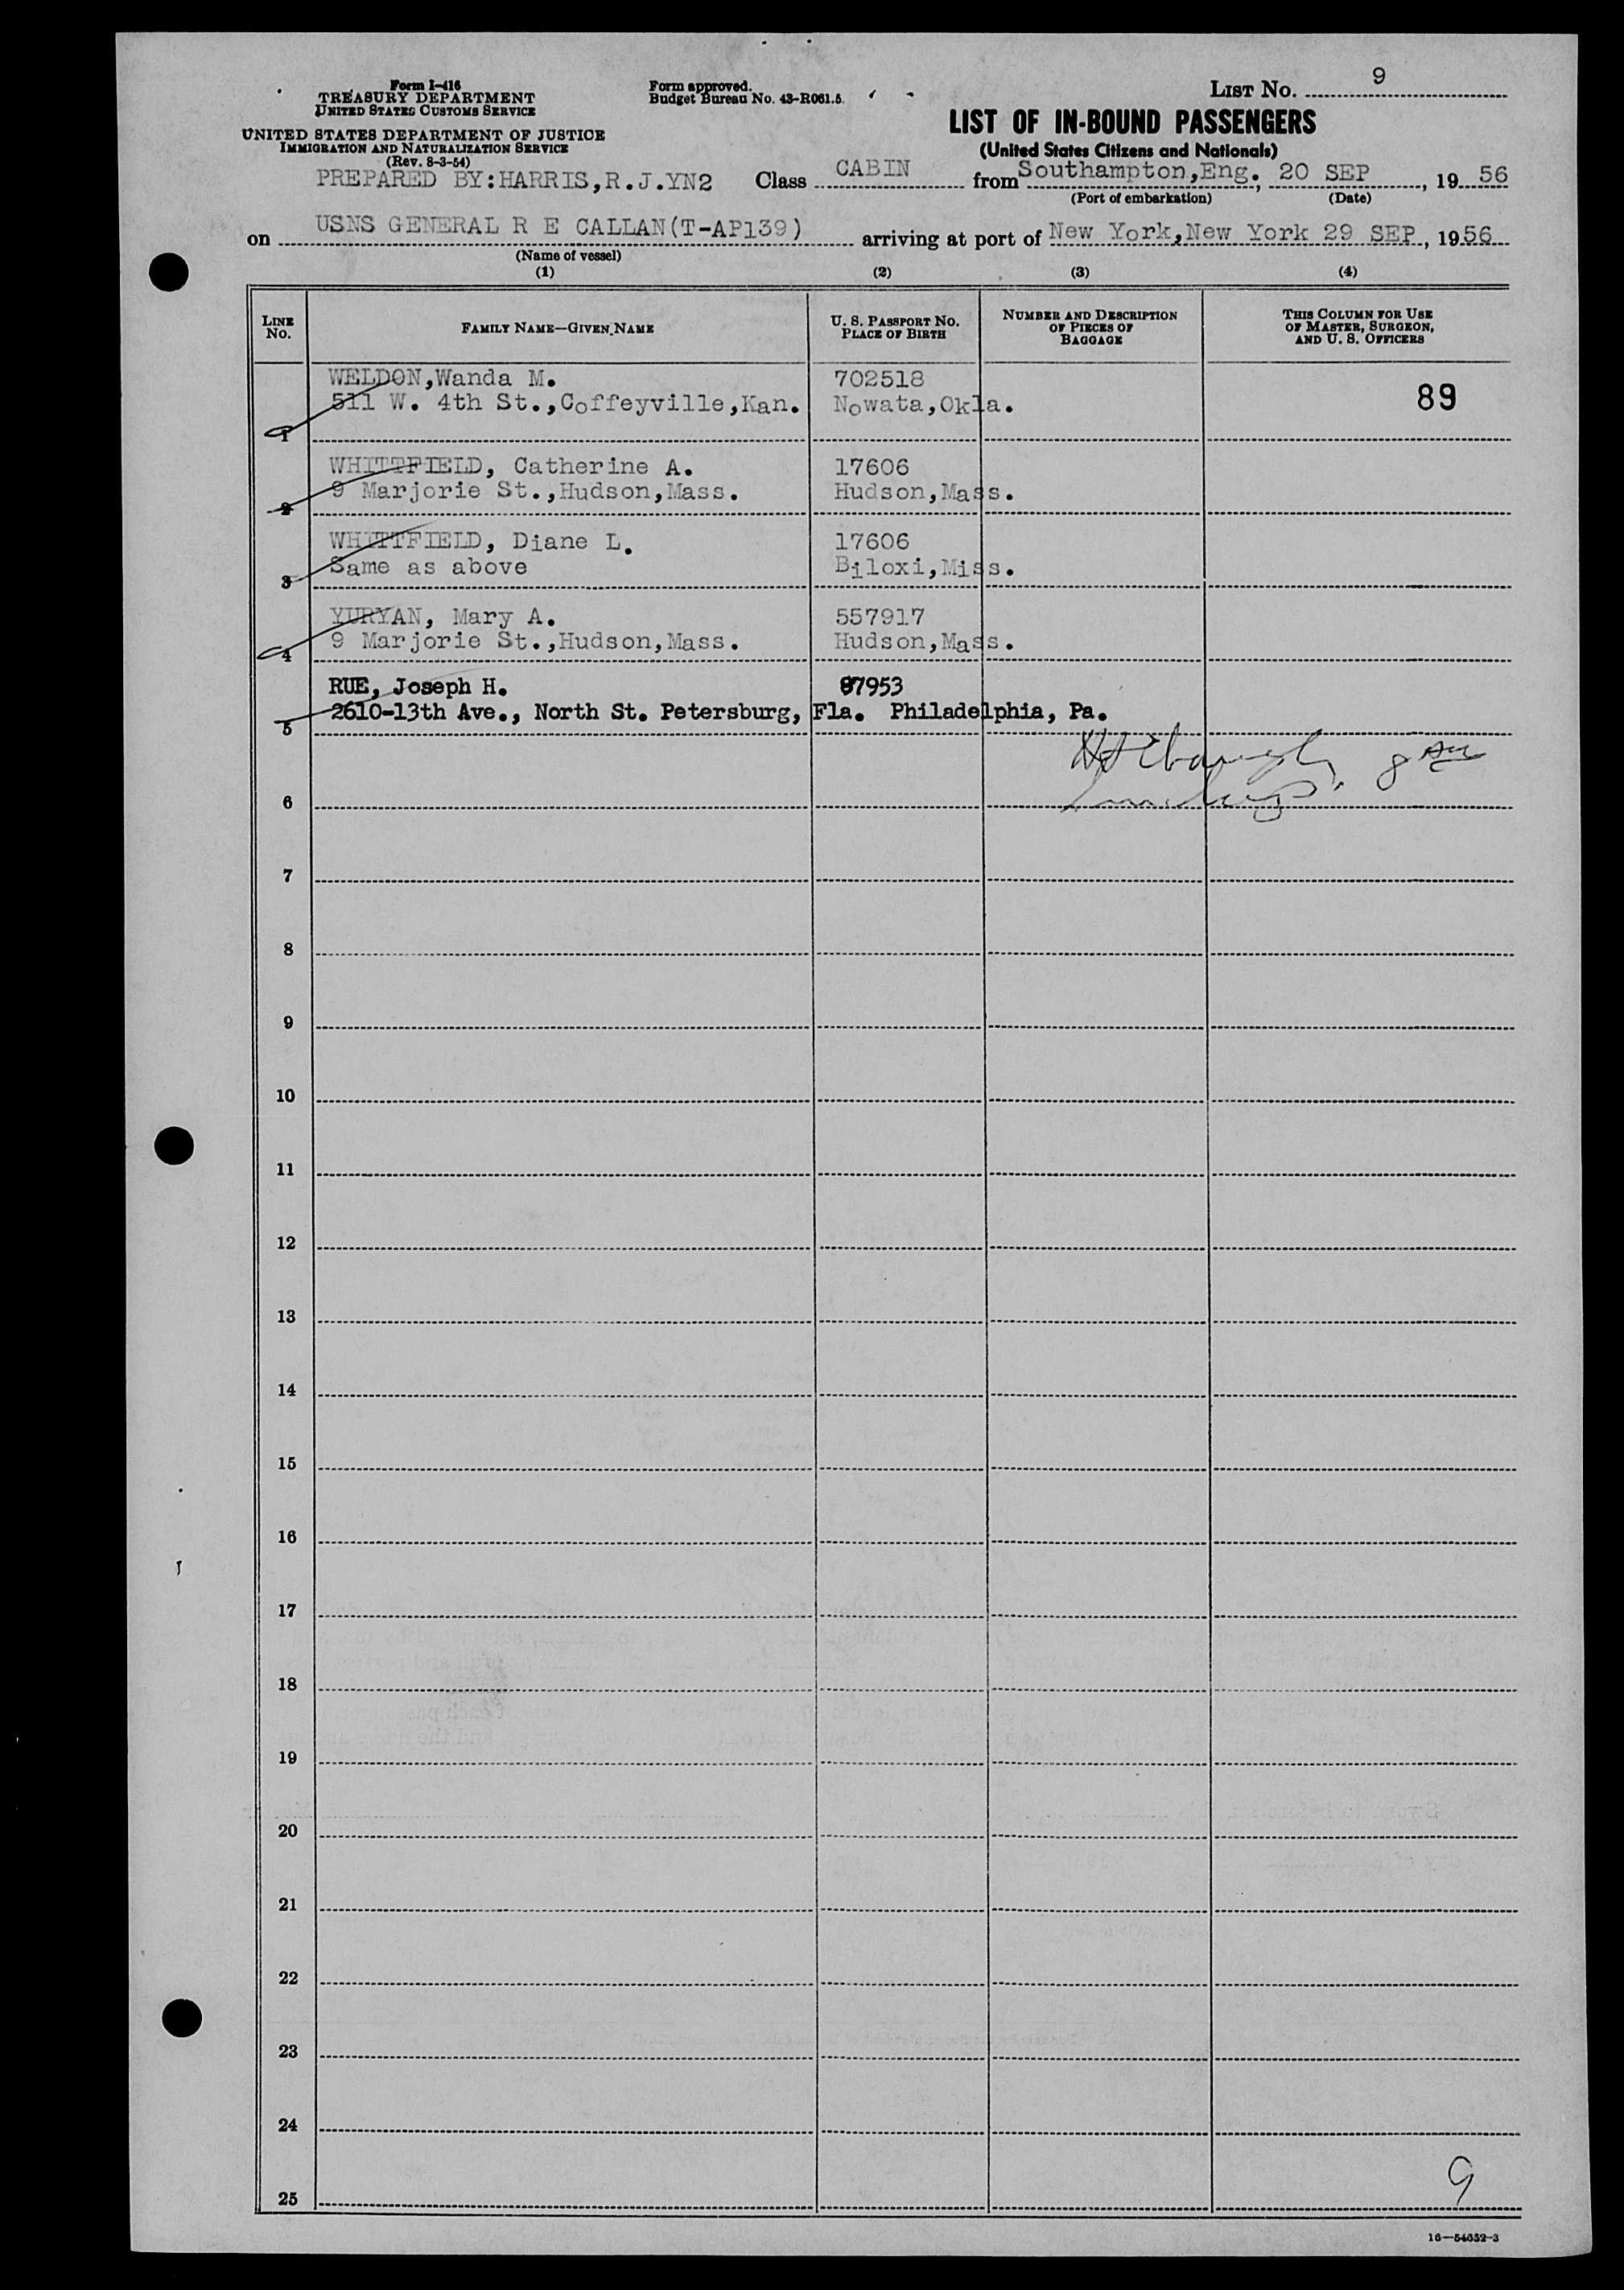 Form I-416
TREASURY DEPARTMENT
UNITED STATES CUSTOMS SERVICE
UNITED STATES DEPARTMENT OF JUSTICE
IMMIGRATION AND NATURALIZATION SERVICE
(Rev. 8-3-54)
Form approved.
Budget Bureau No. 43-R061.5.
LIST No. 9
LIST OF IN-BOUND PASSENGERS
(United States Citizens and Nationals)
PREPARED BY:HARRIS,R.J.YN2 Class CABIN from Southampton,Eng., 20 SEP, 1956
(Port of embarkation) (Date)
on USNS GENERAL R E CALLAN(T-AP139) arriving at port of New York,New York 29 SEP, 1956
(Name of vessel)
(1) (2) (3) (4)
LINE No. FAMILY NAME—GIVEN NAME U. S. PASSPORT No. PLACE OF BIRTH NUMBER AND DESCRIPTION OF PIECES OF BAGGAGE THIS COLUMN FOR USE OF MASTER, SURGEON, AND U. S. OFFICERS
WELDON,Wanda M. 702518
511 W. 4th St.,Coffeyville,Kan. Nowata,Okla. 89
1
WHITTFIELD, Catherine A. 17606
9 Marjorie St.,Hudson,Mass. Hudson,Mass.
2
WHITTFIELD, Diane L. 17606
Same as above Biloxi,Miss.
3
YURYAN, Mary A. 557917
9 Marjorie St.,Hudson,Mass. Hudson,Mass.
4
RUE, Joseph H. 87953
2610-13th Ave., North St. Petersburg, Fla. Philadelphia, Pa.
5
6
7
8
9
10
11
12
13
14
15
16
17
18
19
20
21
22
23
24
9
25
16—54652-3